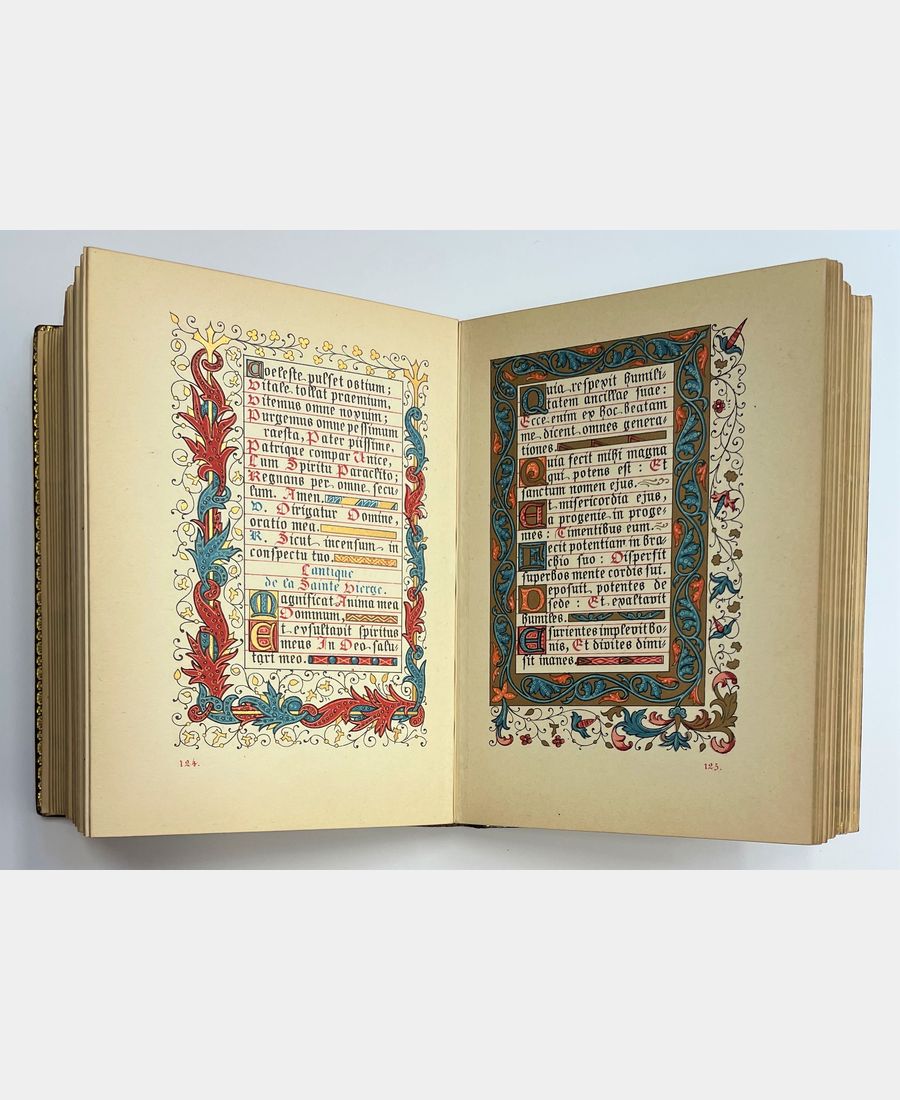 Coeleste pulset ostium;
Vitale tollat praemium,
Vitemus omne noxium;
Purgemus omne pessimum
raesta, Pater piissime,
Patrique compar Unice,
Cum Spiritu Paraclito;
Regnans per omne secu
lum. Amen.
V. Dirigatur Domine,
oratio mea.
R. Sicut incensum in
conspectu tuo.
Cantique
de la Sainte Vierge.
Magnificat Anima mea
Dominum,
Et exsultavit spiritus
meus In Deo salu-
tari meo.
124.
Quia respexit humili-
tatem ancillae suae:
Ecce enim ex hoc beatam
me dicent omnes genera
tiones.
Quia fecit mihi magna
qui potens est: Et
sanctum nomen ejus.
Et misericordia ejus,
a progenie in proge-
nies: Timentibus eum.
Fecit potentiam in bra-
chio suo: Dispersit
superbos mente cordis sui.
Deposuit potentes de
sede: Et exaltavit
humiles.
Esurientes implevit bo-
nis, Et divites dimi-
sit inanes.
125.